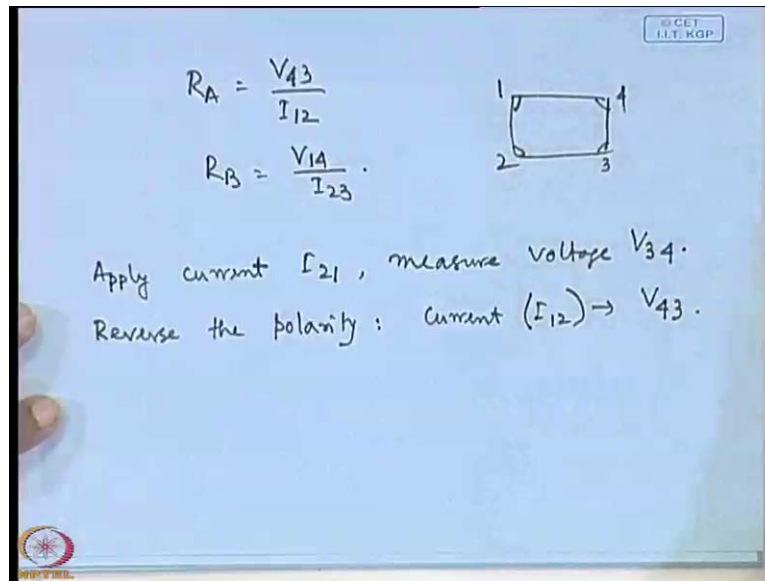 © CET
I.I.T. KGP
R_A = V_43 / I_12
1 4
R_B = V_14 / I_23 .
2 3
Apply current I_21 , measure voltage V_34 .
Reverse the polarity : current (I_12) → V_43 .
NPTEL